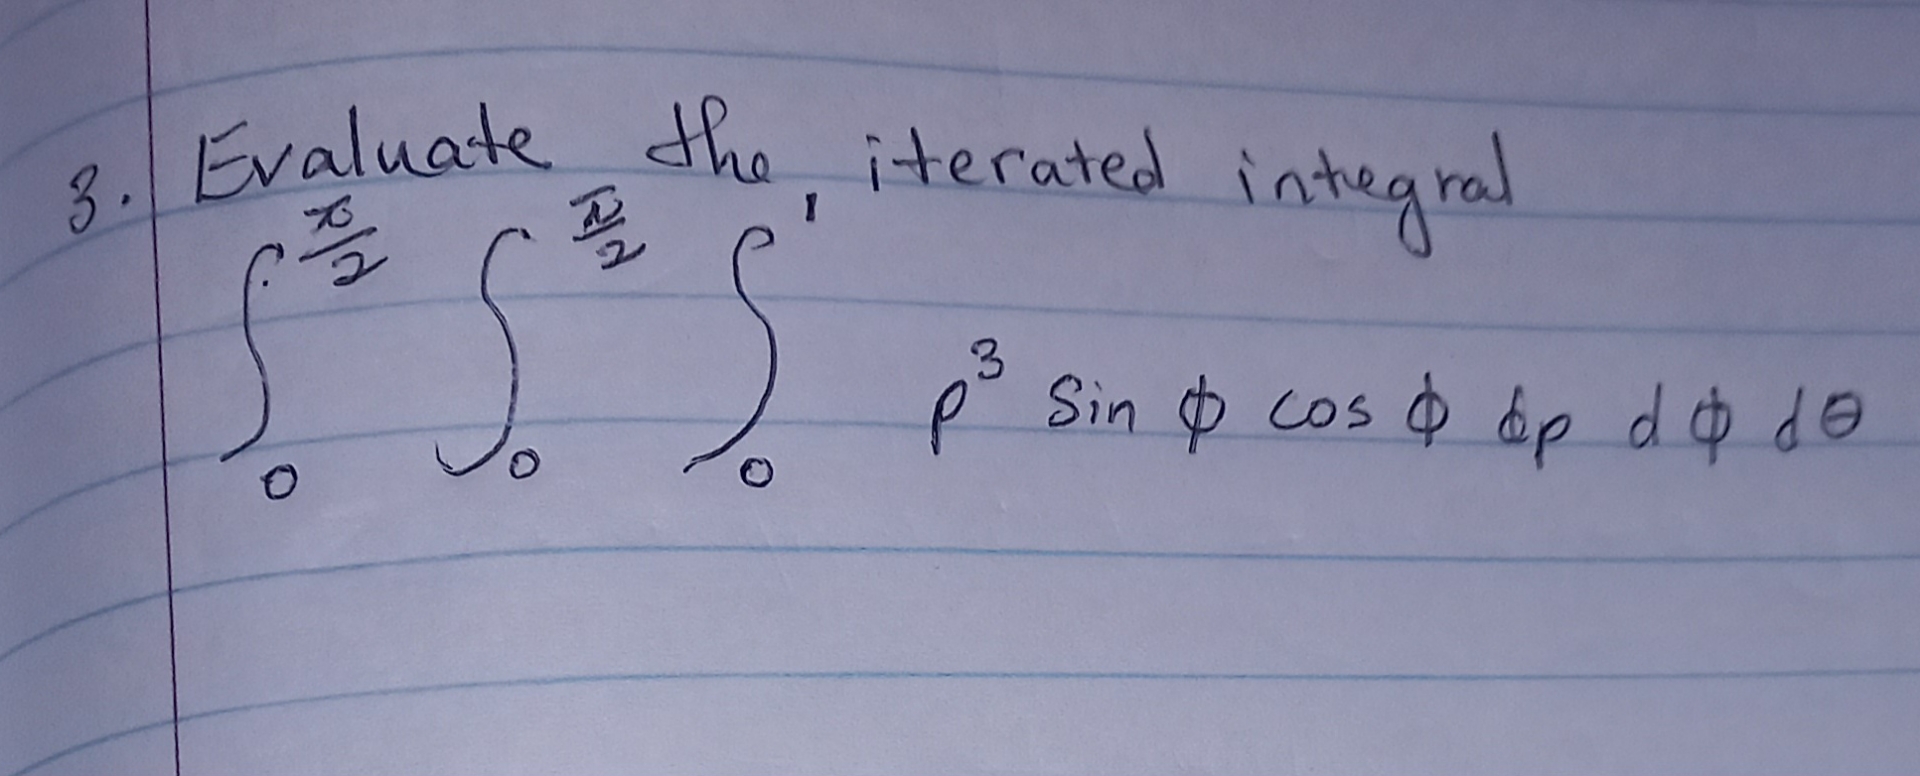 3. Evaluate the iterated integral
∫₀^{π/2} ∫₀^{π/2} ∫₀^{1} ρ³ sin ϕ cos ϕ dρ dϕ dθ